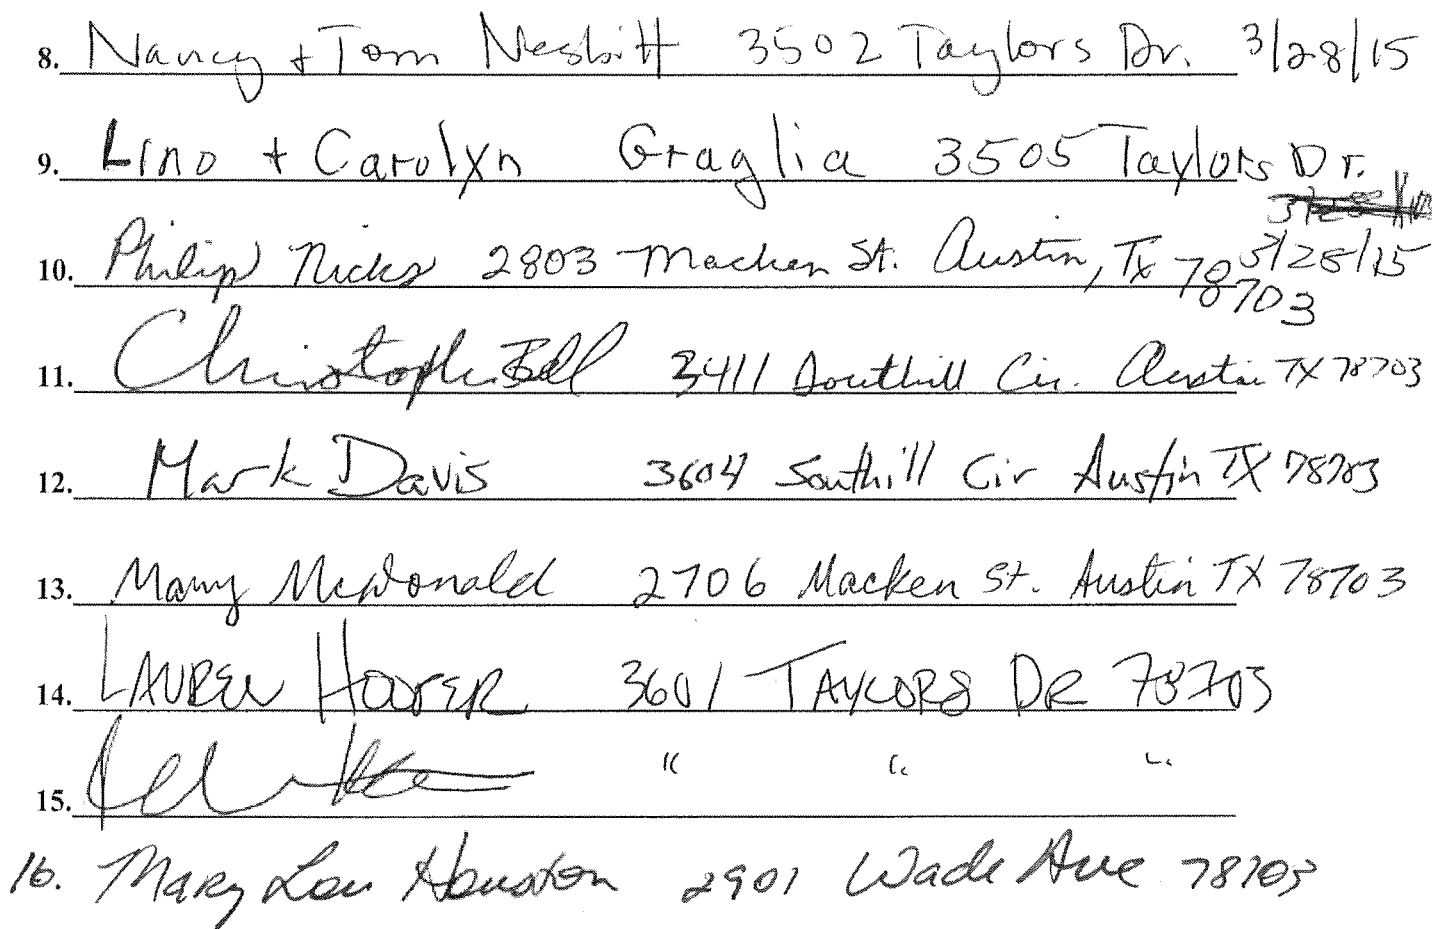 8. Nancy + Tom Nesbitt 3502 Taylors Dr. 3/28/15
9. Lino + Carolyn Graglia 3505 Taylors Dr.
10. Philip Nicks 2803 Macken St. Austin, Tx 78703 3/28/15
11. Christopher Bell 3411 Southill Cir. Austin TX 78703
12. Mark Davis 3604 Southill Cir Austin TX 78703
13. Mary McDonald 2706 Macken St. Austin TX 78703
14. LAUREN HOOVER 3601 TAYLORS DR 78703
15. " " "
16. Mary Lou Houston 2901 Wade Ave 78703